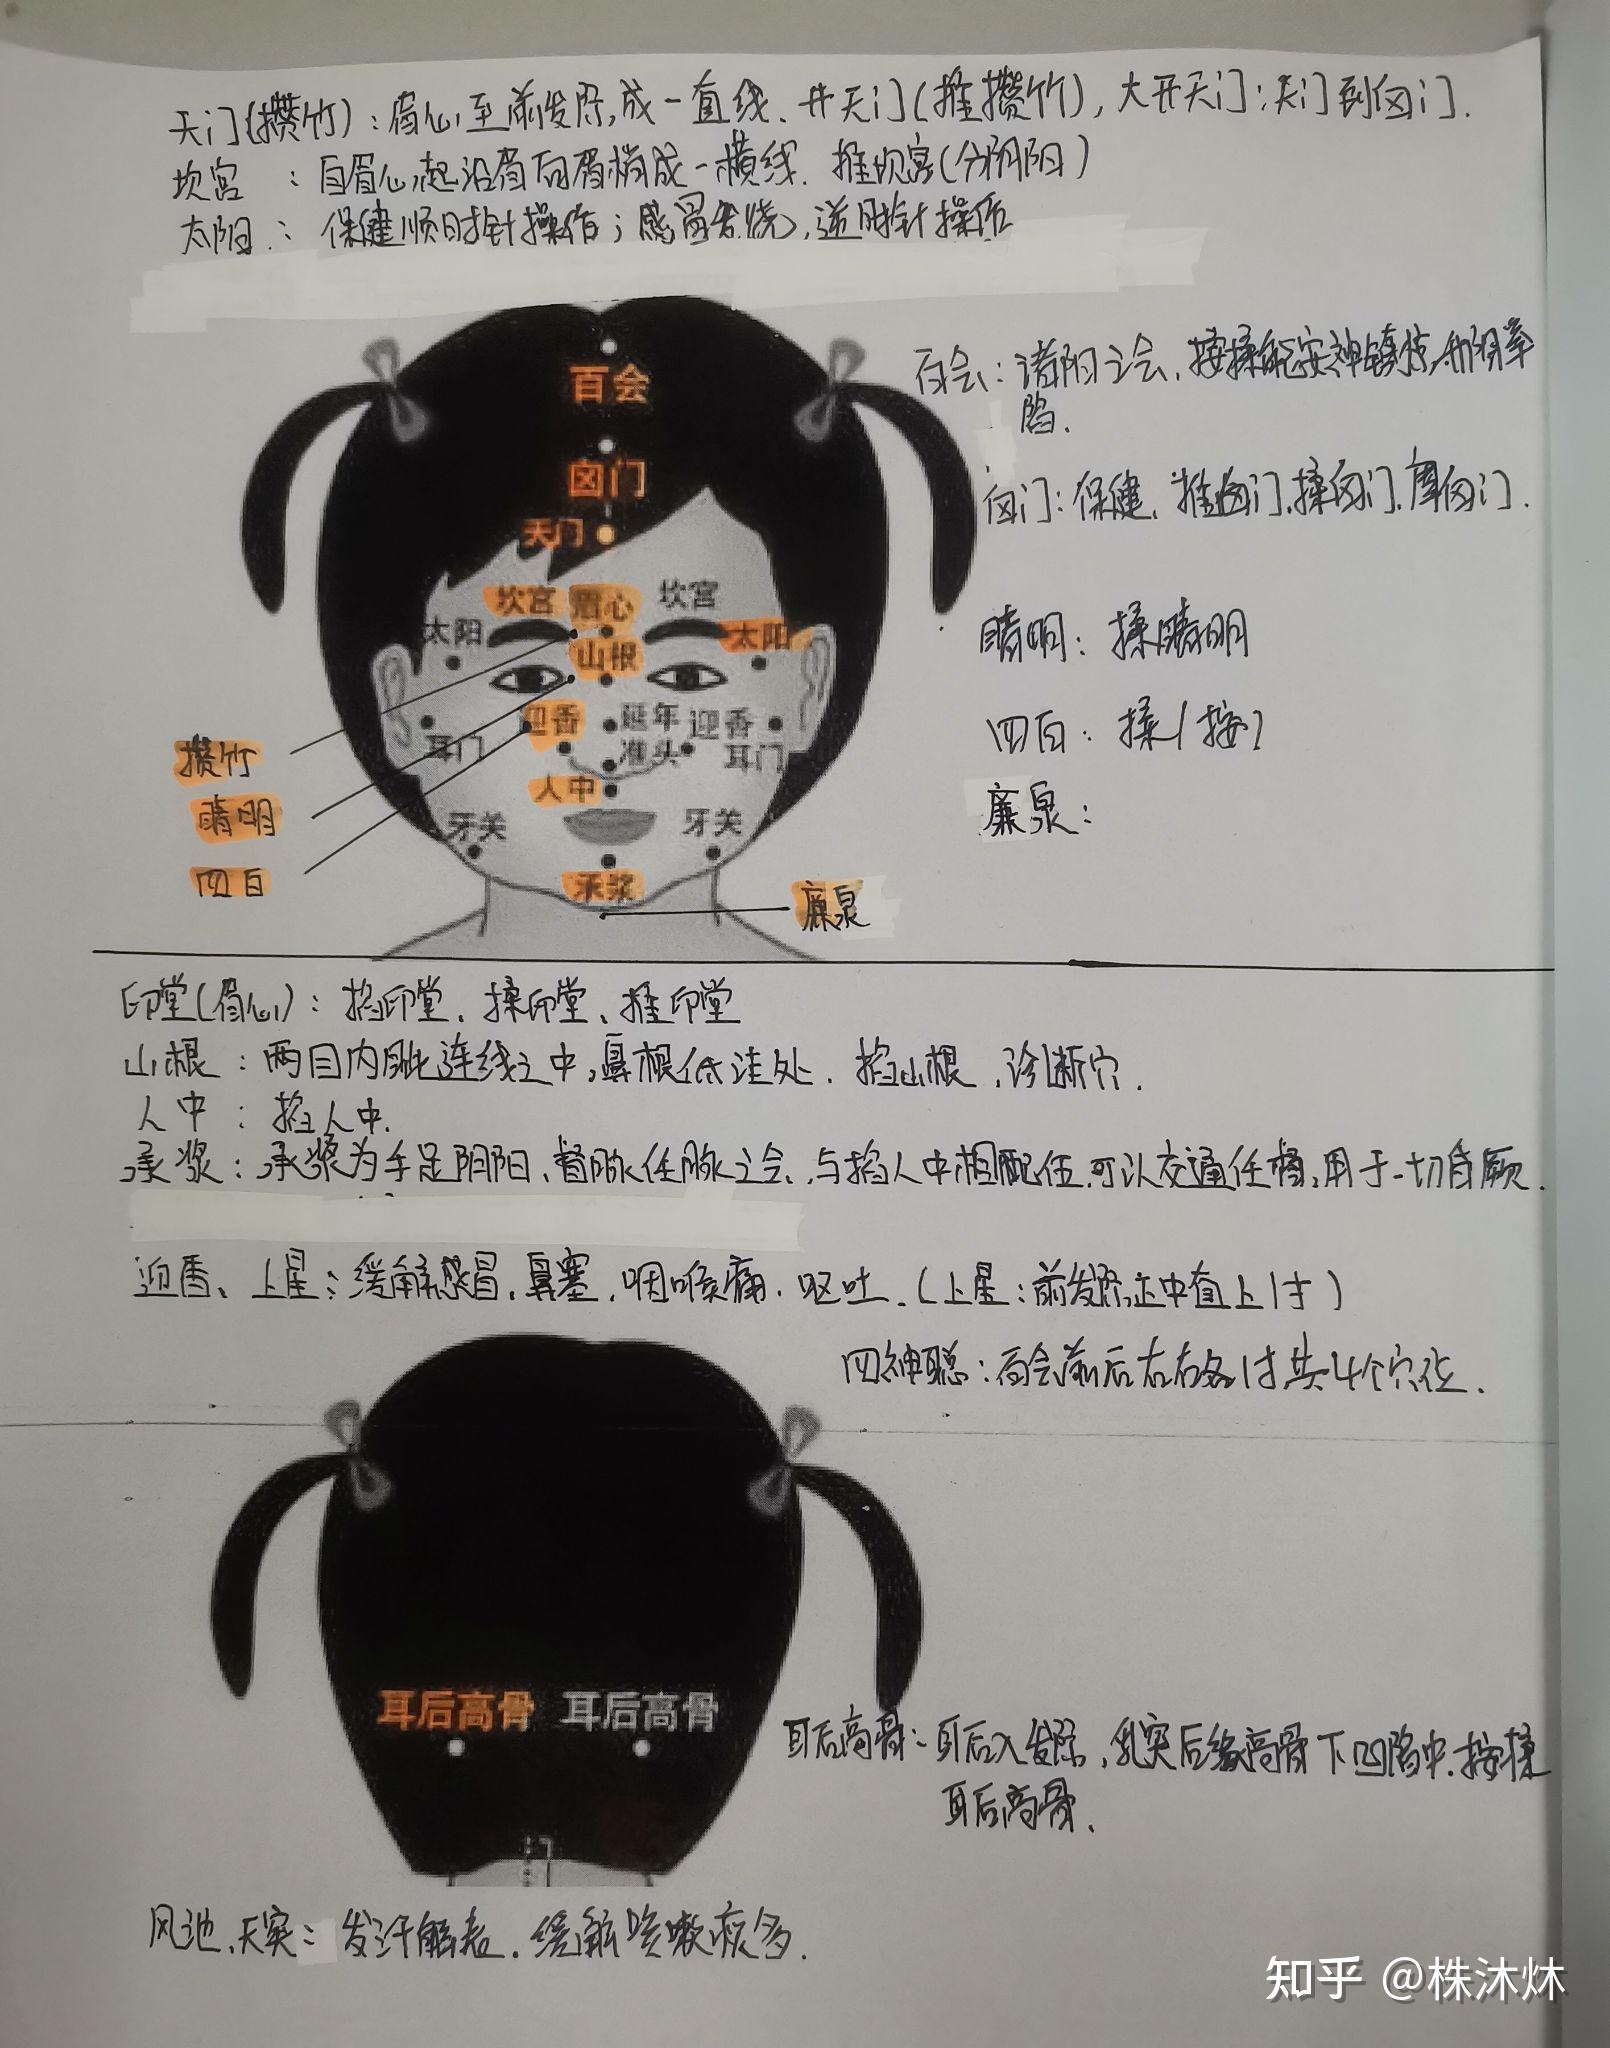 天门(攒竹):眉心至前发际,成一直线、开天门(推攒竹),大开天门:天门到囟门.
坎宫 : 自眉心起沿眉向眉梢成一横线. 推坎宫(分阴阳)
太阳.: 保健顺时针操作;感冒发烧,逆时针操作
百会
百会:诸阳之会,按揉能安神镇惊,升阳举
陷.
囟门
囟门:保健、推囟门.揉囟门.摩囟门.
天门
坎宫 眉心 坎宫
太阳 太阳
山根
睛明: 揉睛明
迎香 延年 迎香
耳门 准头 耳门
四白: 揉(按)
攒竹
人中
睛明
牙关 牙关
廉泉:
四白
承浆
廉泉
印堂(眉心): 掐印堂、揉印堂、推印堂
山根:两目内眦连线之中,鼻根低洼处. 掐山根,诊断穴.
人中: 掐人中.
承浆:承浆为手足阴阳、督脉任脉之会,与掐人中相配伍,可以交通任督,用于一切自颐.
迎香、上星:缓解感冒,鼻塞,咽喉痛.呕吐.(上星:前发际正中直上1寸)
四神聪:百会前后左右各1寸共4个穴位.
耳后高骨 耳后高骨
耳后高骨:耳后入发际,乳突后缘高骨下凹陷中.按揉
耳后高骨.
风池、天突: 发汗解表. 缓解咳嗽痰多.
知乎 @株沐炑